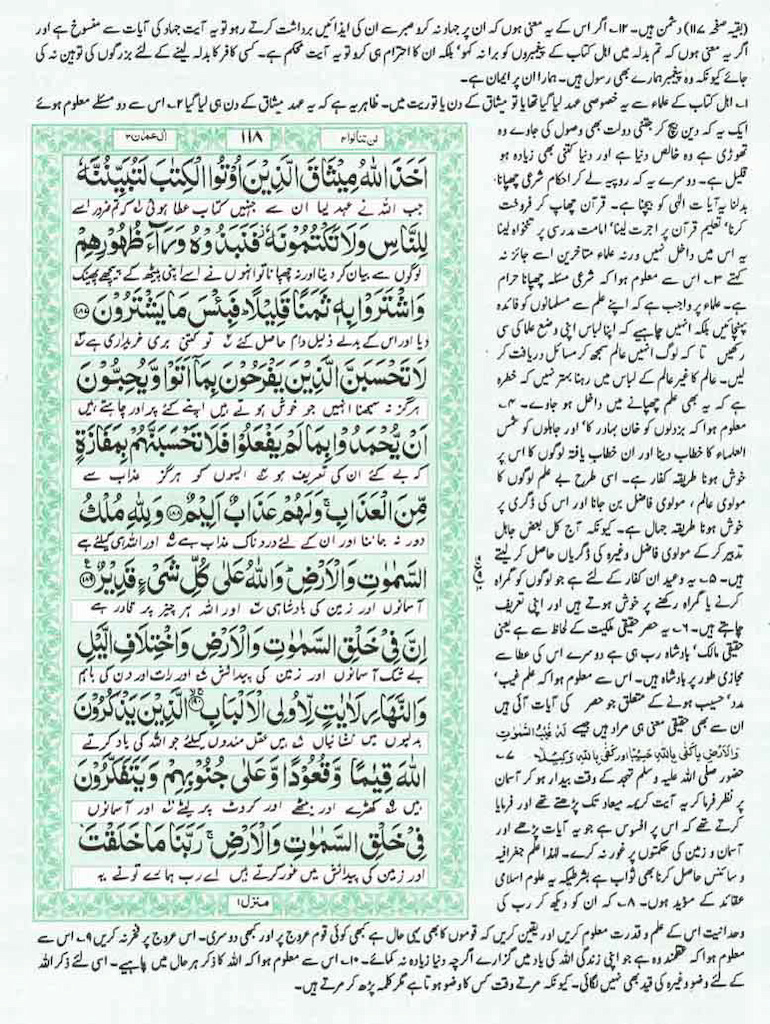 (بقیہ صفحہ ۱۱۷) دشمن ہیں۔ ۱۲۔ اگر اس کے یہ معنی ہوں کہ ان پر جہاد نہ کرو صبر سے ان کی ایذائیں برداشت کرتے رہو تو یہ آیت جہاد کی آیات سے منسوخ ہے اور
اگر یہ معنی ہوں کہ تم بدلہ میں اہل کتاب کے پیغمبروں کو برا نہ کہو' بلکہ ان کا احترام ہی کرو تو یہ آیت محکم ہے۔ کسی کافر کا بدلہ لینے کے لئے بزرگوں کی توہین نہ کی
جائے کیونکہ وہ پیغمبر ہمارے بھی رسول ہیں۔ ہمارا ان پر ایمان ہے۔
۱۔ اہل کتاب کے علماء سے یہ خصوصی عہد لیا گیا تھا یا تو میثاق کے دن یا توریت میں۔ ظاہر یہ ہے کہ یہ عہد میثاق کے دن ہی لیا گیا ۲۔ اس سے دو مسئلے معلوم ہوئے
ایک یہ کہ دین بیچ کر جتنی دولت بھی وصول کی جاوے وہ
تھوڑی ہے وہ خالص دنیا ہے اور دنیا کتنی بھی زیادہ ہو
قلیل ہے۔ دوسرے یہ کہ روپیہ لے کر احکام شرعی چھپانا
بدلنا یہ آیات الٰہی کو بیچنا ہے۔ قرآن چھاپ کر فروخت
کرنا' تعلیم قرآن پر اجرت لینا' امامت مدرسی پر تنخواہ لینا
یہ اس میں داخل نہیں ورنہ علماء متاخرین اسے جائز نہ
کہتے ۳۔ اس سے معلوم ہوا کہ شرعی مسئلہ چھپانا حرام
ہے۔ علماء پر واجب ہے کہ اپنے علم سے مسلمانوں کو فائدہ
پہنچائیں بلکہ انہیں چاہیے کہ اپنا لباس اپنی وضع علما کی سی
رکھیں تا کہ لوگ انہیں عالم سمجھ کر مسائل دریافت کر
لیں۔ عالم کا غیر عالم کے لباس میں رہنا بہتر نہیں کہ خطرہ
ہے کہ یہ بھی علم چھپانے میں داخل ہو جاوے۔ ۴۔
معلوم ہوا کہ بزدلوں کو خان بہادر کا' اور جاہلوں کو شمس
العلماء کا خطاب دینا اور ان خطاب یافتہ لوگوں کا اس پر
خوش ہونا طریقہ کفار ہے۔ اسی طرح بے علم لوگوں کا
مولوی عالم، مولوی فاضل بن جانا اور اس کی ڈگری پر
خوش ہونا طریقہ جہال ہے۔ کیونکہ آج کل بعض جاہل
تدبیر کر کے مولوی فاضل وغیرہ کی ڈگریاں حاصل کر لیتے
ہیں۔ ۵۔ یہ وعید ان کفار کے لئے ہے جو لوگوں کو گمراہ
کرنے یا گمراہ رکھنے پر خوش ہوتے ہیں اور اپنی تعریف
چاہتے ہیں۔ ۶۔ یہ حصر حقیقی ملکیت کے لحاظ سے ہے یعنی
حقیقی مالک' بادشاہ رب ہی ہے دوسرے اس کی عطا سے
مجازی طور پر بادشاہ ہیں۔ اس سے معلوم ہوا کہ علم غیب'
مدد' حسیب ہونے کے متعلق جو حصر کی آیات آئی ہیں
ان سے بھی حقیقی معنی ہی مراد ہیں جیسے لَهُ غَيْبُ السَّمٰوٰتِ
وَالْاَرْضِ یا كَفٰى بِاللّٰهِ حَسِيْبًا اور كَفٰى بِاللّٰهِ وَكِيْلًا ۷۔
حضور صلی اللہ علیہ وسلم تہجد کے وقت بیدار ہو کر آسمان
پر نظر فرما کر یہ آیت کریمہ میعاد تک پڑھتے تھے اور فرمایا
کرتے تھے کہ اس پر افسوس ہے جو یہ آیات پڑھے اور
آسمان و زمین کی حکمتوں پر غور نہ کرے۔ لہٰذا علم جغرافیہ
و سائنس حاصل کرنا بھی ثواب ہے بشرطیکہ یہ علوم اسلامی
عقائد کے مؤید ہوں۔ ۸۔ کہ ان کو دیکھ کر رب کی
لن تنالوا ۴
۱۱۸
اٰل عمرٰن ۳
اَخَذَ اللّٰهُ مِيْثَاقَ الَّذِيْنَ اُوْتُوا الْكِتٰبَ لَتُبَيِّنُنَّهٗ
جب اللہ نے عہد لیا ان سے جنہیں کتاب عطا ہوئی کہ تم ضرور اسے
لِلنَّاسِ وَلَا تَكْتُمُوْنَهٗ فَنَبَذُوْهُ وَرَآءَ ظُهُوْرِهِمْ
لوگوں سے بیان کر دینا اور نہ چھپانا تو انہوں نے اسے اپنی پیٹھ کے پیچھے پھینک
وَاشْتَرَوْا بِهٖ ثَمَنًا قَلِيْلًا فَبِئْسَ مَا يَشْتَرُوْنَ ۱۸۷
دیا اور اس کے بدلے ذلیل دام حاصل کئے تو کتنی بری خریداری ہے
لَا تَحْسَبَنَّ الَّذِيْنَ يَفْرَحُوْنَ بِمَآ اَتَوْا وَّيُحِبُّوْنَ
ہرگز نہ سمجھنا انہیں جو خوش ہوتے ہیں اپنے کئے پر اور چاہتے ہیں
اَنْ يُّحْمَدُوْا بِمَا لَمْ يَفْعَلُوْا فَلَا تَحْسَبَنَّهُمْ بِمَفَازَةٍ
کہ بے کئے ان کی تعریف ہو ایسوں کو ہرگز عذاب سے
مِّنَ الْعَذَابِ وَلَهُمْ عَذَابٌ اَلِيْمٌ ۱۸۸ وَلِلّٰهِ مُلْكُ
دور نہ جاننا اور ان کے لئے دردناک عذاب ہے اور اللہ ہی کیلئے ہے
السَّمٰوٰتِ وَالْاَرْضِ وَاللّٰهُ عَلٰى كُلِّ شَيْءٍ قَدِيْرٌ ۱۸۹
آسمانوں اور زمین کی بادشاہی اور اللہ ہر چیز پر قادر ہے
اِنَّ فِيْ خَلْقِ السَّمٰوٰتِ وَالْاَرْضِ وَاخْتِلَافِ الَّيْلِ
بے شک آسمانوں اور زمین کی پیدائش اور رات اور دن کی باہم
وَالنَّهَارِ لَاٰيٰتٍ لِّاُولِى الْاَلْبَابِ ۱۹۰ الَّذِيْنَ يَذْكُرُوْنَ
بدلیوں میں نشانیاں ہیں عقل مندوں کیلئے جو اللہ کی یاد کرتے
اللّٰهَ قِيٰمًا وَّقُعُوْدًا وَّعَلٰى جُنُوْبِهِمْ وَيَتَفَكَّرُوْنَ
ہیں کھڑے اور بیٹھے اور کروٹ پر لیٹے اور آسمانوں
فِيْ خَلْقِ السَّمٰوٰتِ وَالْاَرْضِ رَبَّنَا مَا خَلَقْتَ
اور زمین کی پیدائش میں غور کرتے ہیں اے رب ہمارے تو نے یہ
منزل ۱
وحدانیت اس کے علم و قدرت معلوم کریں اور یقین کریں کہ قوموں کا بھی یہی حال ہے کبھی کوئی قوم عروج پر اور کبھی دوسری۔ اس عروج پر فخر نہ کریں ۹۔ اس سے
معلوم ہوا کہ عقلمند وہ ہے جو اپنی زندگی اللہ کی یاد میں گزارے اگرچہ دنیا زیادہ نہ کمائے۔ ۱۰۔ اس سے معلوم ہوا کہ اللہ کا ذکر ہر حال میں چاہیے۔ اسی لئے ذکر اللہ
کے لئے وضو وغیرہ کی قید بھی نہیں لگائی۔ کیونکہ مرتے وقت کس کا وضو ہوتا ہے مگر کلمہ پڑھ کر مرتے ہیں۔